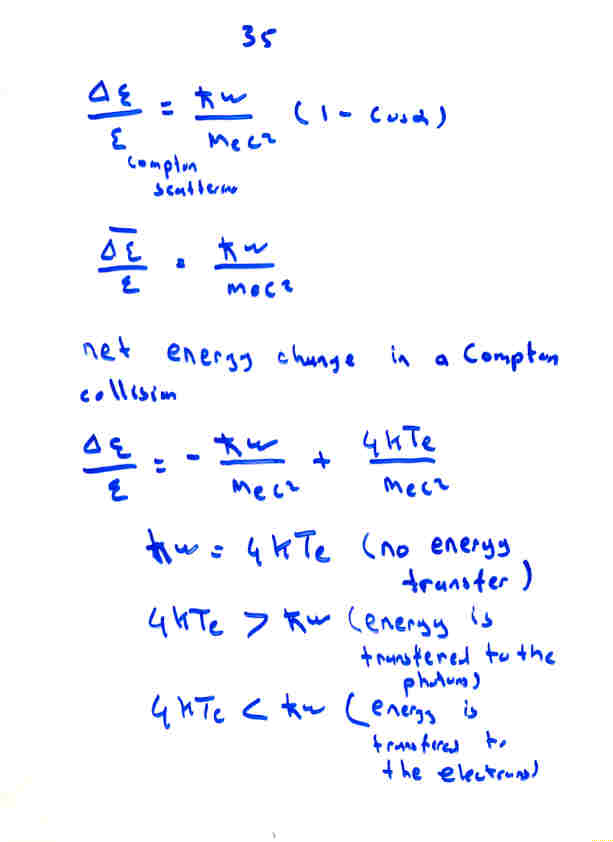 35
Δε/ε = ħw/mec2 (1 - cosα)
compton
scattering
Δε/ε = ħw/mec2
net energy change in a Compton
collision
Δε/ε = - ħw/mec2 + 4kTe/mec2
ħw = 4kTe (no energy
transfer)
4kTe > ħw (energy is
transfered to the
photons)
4kTe < ħw (energy is
transfered to
the electrons)